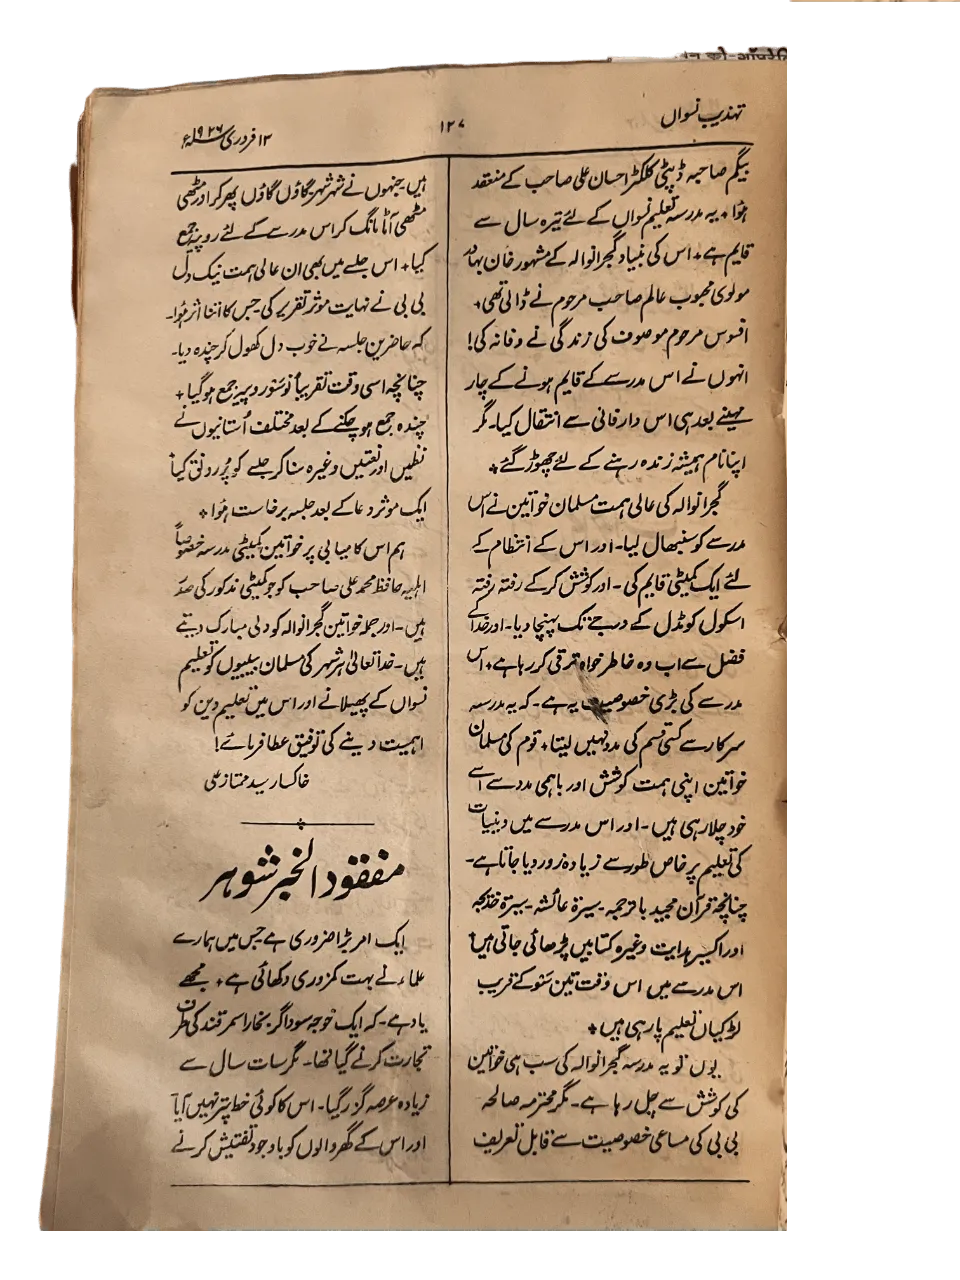 تہذیب نسواں
۱۲۷
۱۳ فروری ۱۹۲۶ء
بیگم صاحبہ ڈپٹی کلکٹر احسان علی صاحب کے منعقد
ہؤا۔ یہ مدرسہ تعلیم نسواں کے لئے تیرہ سال سے
قایم ہے۔ اس کی بنیاد گجرانوالہ کے مشہور خان بہادر
مولوی محبوب عالم صاحب مرحوم نے ڈالی تھی۔
افسوس مرحوم موصوف کی زندگی نے وفا نہ کی!
انہوں نے اس مدرسے کے قایم ہونے کے چار
مہینے بعد ہی اس دار فانی سے انتقال کیا۔ مگر
اپنا نام ہمیشہ زندہ رہنے کے لئے چھوڑ گئے۔
گجرانوالہ کی عالی ہمت مسلمان خواتین نے اس
مدرسے کو سنبھال لیا۔ اور اس کے انتظام کے
لئے ایک کمیٹی قایم کی۔ اور کوشش کر کے رفتہ رفتہ
اسکول کو مڈل کے درجے تک پہنچا دیا۔ اور خدا کے
فضل سے اب وہ خاطر خواہ ترقی کر رہا ہے۔ اس
مدرسے کی بڑی خصوصیت یہ ہے۔ کہ یہ مدرسہ
سرکار سے کسی قسم کی مدد نہیں لیتا۔ قوم کی مسلمان
خواتین اپنی ہمت کوشش اور باہمی مدد سے اسے
خود چلا رہی ہیں۔ اور اس مدرسے میں دینیات
کی تعلیم پر خاص طور سے زیادہ زور دیا جاتا ہے۔
چنانچہ قرآن مجید با ترجمہ۔ سیرۃ عائشہ۔ سیرۃ خدیجہ
اور اکسیر ہدایت وغیرہ کتابیں پڑھائی جاتی ہیں۔
اس مدرسے میں اس وقت تین سَو کے قریب
لڑکیاں تعلیم پا رہی ہیں۔
یوں تو یہ مدرسہ گجرانوالہ کی سب ہی خواتین
کی کوشش سے چل رہا ہے۔ مگر محترمہ صالحہ
بی بی کی مساعی خصوصیت سے قابل تعریف
ہیں۔ جنہوں نے شہر شہر گاؤں گاؤں پھر کر اور مٹھی
مٹھی آٹا مانگ کر اس مدرسے کے لئے روپیہ جمع
کیا۔ اس جلسے میں بھی ان عالی ہمت نیک دل
بی بی نے نہایت موثر تقریر کی جس کا اتنا اثر ہؤا۔
کہ حاضرین جلسہ نے خوب دل کھول کر چندہ دیا۔
چنانچہ اسی وقت تقریباً نو سَو روپیہ جمع ہو گیا۔
چندہ جمع ہو چکنے کے بعد مختلف اُستانیوں نے
نظمیں اور نعتیں وغیرہ سنا کر جلسے کو پُر رونق کیا۔
ایک موثر دعا کے بعد جلسہ برخاست ہؤا۔
ہم اس کامیابی پر خواتین کمیٹی مدرسہ خصوصاً
اہلیہ حافظ محمد علی صاحب کو جو کمیٹی مذکور کی صدر
ہیں۔ اور جملہ خواتین گجرانوالہ کو دلی مبارک دیتے
ہیں۔ خدا تعالیٰ ہر شہر کی مسلمان بیبیوں کو تعلیم
نسواں کے پھیلانے اور اس میں تعلیم دین کو
اہمیت دینے کی توفیق عطا فرمائے!
خاکسار سید ممتاز علی
مفقود الخبر شوہر
ایک امر بڑا ضروری ہے جس میں ہمارے
علماء نے بہت کمزوری دکھائی ہے۔ مجھے
یاد ہے۔ کہ ایک خوجہ سوداگر بخارا سمرقند کی طرف
تجارت کرنے گیا تھا۔ مگر سات سال سے
زیادہ عرصہ گزر گیا۔ اس کا کوئی خط پتر نہیں آیا
اور اس کے گھر والوں کو باوجود تفتیش کرنے